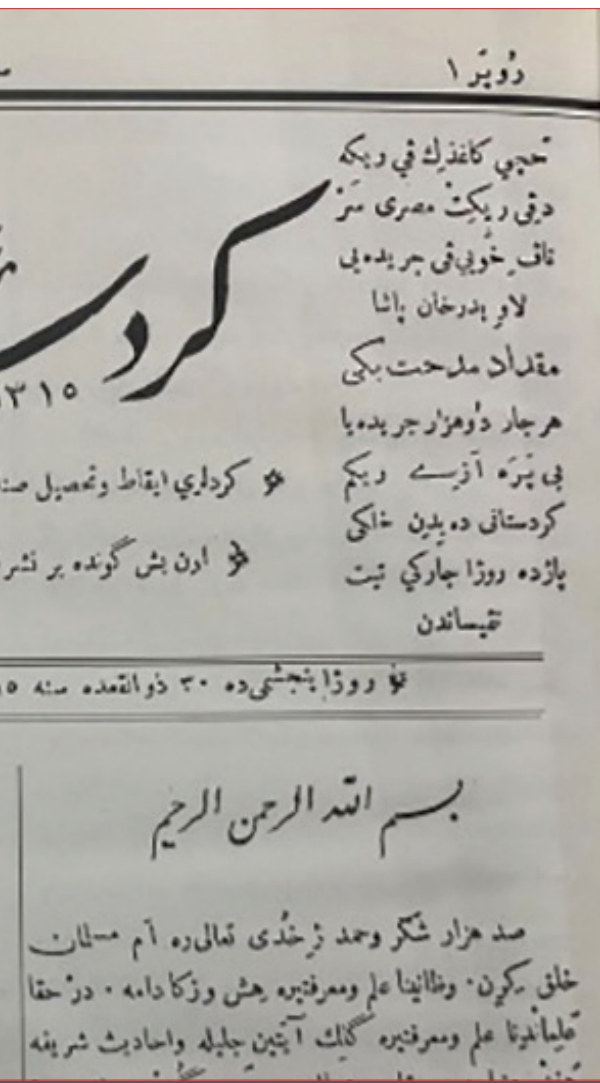 رُوپَر ١
تحجبي كاغذك في ريكه
دفي ريكت مصرى سَرْ
ناف خُويي في جريده يى
لاو بدرخان پاشا
مقداد مدحت بكى
هر جار دُوهزار جريده يا
بى پَرَه آزيى ريكم
كردستانى ده بدن خلكى
پازده روژا جاركي تيت
نڤيساندن
كرد
٣١٥
كردلري ايقاظ وتحصيل صنا
اون بش گونده بر نشر
روژا پنجشمى ده ٣٠ ذوالقعده سنه
بسم الله الرحمن الرحيم
صد هزار شُكر وحمد ژ خُدى تعالى ره اَم مسلمان
خلق كِرِن٠ وظانينا علم ومعرفتيره هِش وزكا دامه ٠ در حقا
علم ومعرفتيره گلك آيتين جليله واحاديث شريفه